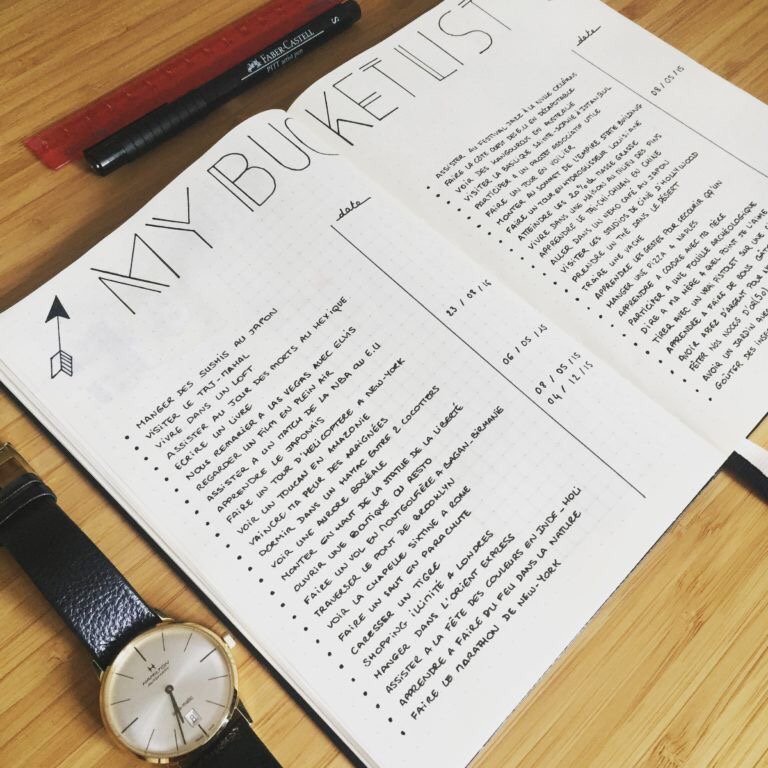 FABER CASTELL
PITT artist pen
S
MY BUCKET LIST
date
MANGER DES SUSHIS AU JAPON
VISITER LE TAJ-MAHAL
VIVRE DANS UN LOFT
ASSISTER AU JOUR DES MORTS AU MEXIQUE
ECRIRE UN LIVRE
NOUS REMARIER A LAS VEGAS AVEC ELVIS
REGARDER UN FILM EN PLEIN AIR
ASSISTER A UN MATCH DE LA NBA AU E.U
APPRENDRE LE JAPONAIS
FAIRE UN TOUR D'HELICOPTERE A NEW-YORK
VOIR UN TOUCAN EN AMAZONIE
VAINCRE MA PEUR DES ARAIGNÉES
DORMIR DANS UN HAMAC ENTRE 2 COCOTIERS
VOIR UNE AURORE BORÉALE
MONTER EN HAUT DE LA STATUE DE LA LIBERTÉ
OUVRIR UNE BOUTIQUE OU RESTO
FAIRE UN VOL EN MONTGOLFIÈRE A BAGAN-BIRMANIE
TRAVERSER LE PONT DE BROOKLYN
VOIR LA CHAPELLE SIXTINE A ROME
FAIRE UN SAUT EN PARACHUTE
CARESSER UN TIGRE
SHOPPING ILLIMITÉ A LONDRES
MANGER DANS L'ORIENT EXPRESS
ASSISTER A LA FÊTE DES COULEURS EN INDE-HOLI
APPRENDRE A FAIRE DU FEU DANS LA NATURE
FAIRE LE MARATHON DE NEW-YORK
23 / 08 / 15
06 / 05 / 15
08 / 05 / 15
04 / 12 / 15
date
ASSISTER AU FESTIVAL JAZZ À LA NLLE ORLÉANS
FAIRE LA CÔTE OUEST DES E.U EN DÉCAPOTABLE
VOIR DES KANGOUROUX EN AUSTRALIE
VISITER LA BASILIQUE SAINTE-SOPHIE A ISTANBUL
PARTICIPER A UN PROJET ASSOCIATIF UTILE
FAIRE UN TOUR EN VOILIER
MONTER AU SOMMET DE L'EMPIRE STATE BUILDING
FAIRE UN TOUR EN HYDROGLISSEUR LOUISIANE
ATTEINDRE LES 20% DE MASSE GRASSE
VIVRE DANS UNE MAISON AU MILIEU DES PINS
APPRENDRE LE TAI-CHI-CHUAN EN CHINE
ALLER DANS UN NEKO CAFÉ AU JAPON
VISITER LES STUDIOS DE CINÉ D'HOLLYWOOD
PRENDRE UN THÉ DANS LE DÉSERT
TRAIRE UNE VACHE
APPRENDRE LES GESTES POUR SECOURIR QU'UN
MANGER UNE PIZZA A NAPLES
APPRENDRE A COUDRE AVEC MA MÈRE
PARTICIPER A UNE FOUILLE ARCHÉOLOGIQUE
DIRE A MA MÈRE A QUEL POINT JE L'AIME
TIRER AVEC UN VRAI PISTOLET SUR UNE
APPRENDRE A FAIRE DE BONS
AVOIR ASSEZ D'ARGENT POUR
FÊTER NOS NOCES D'OR(50)
AVOIR UN JARDIN AVEC
GOÛTER DES
08 / 05 / 15
HAMILTON
AUTOMATIC